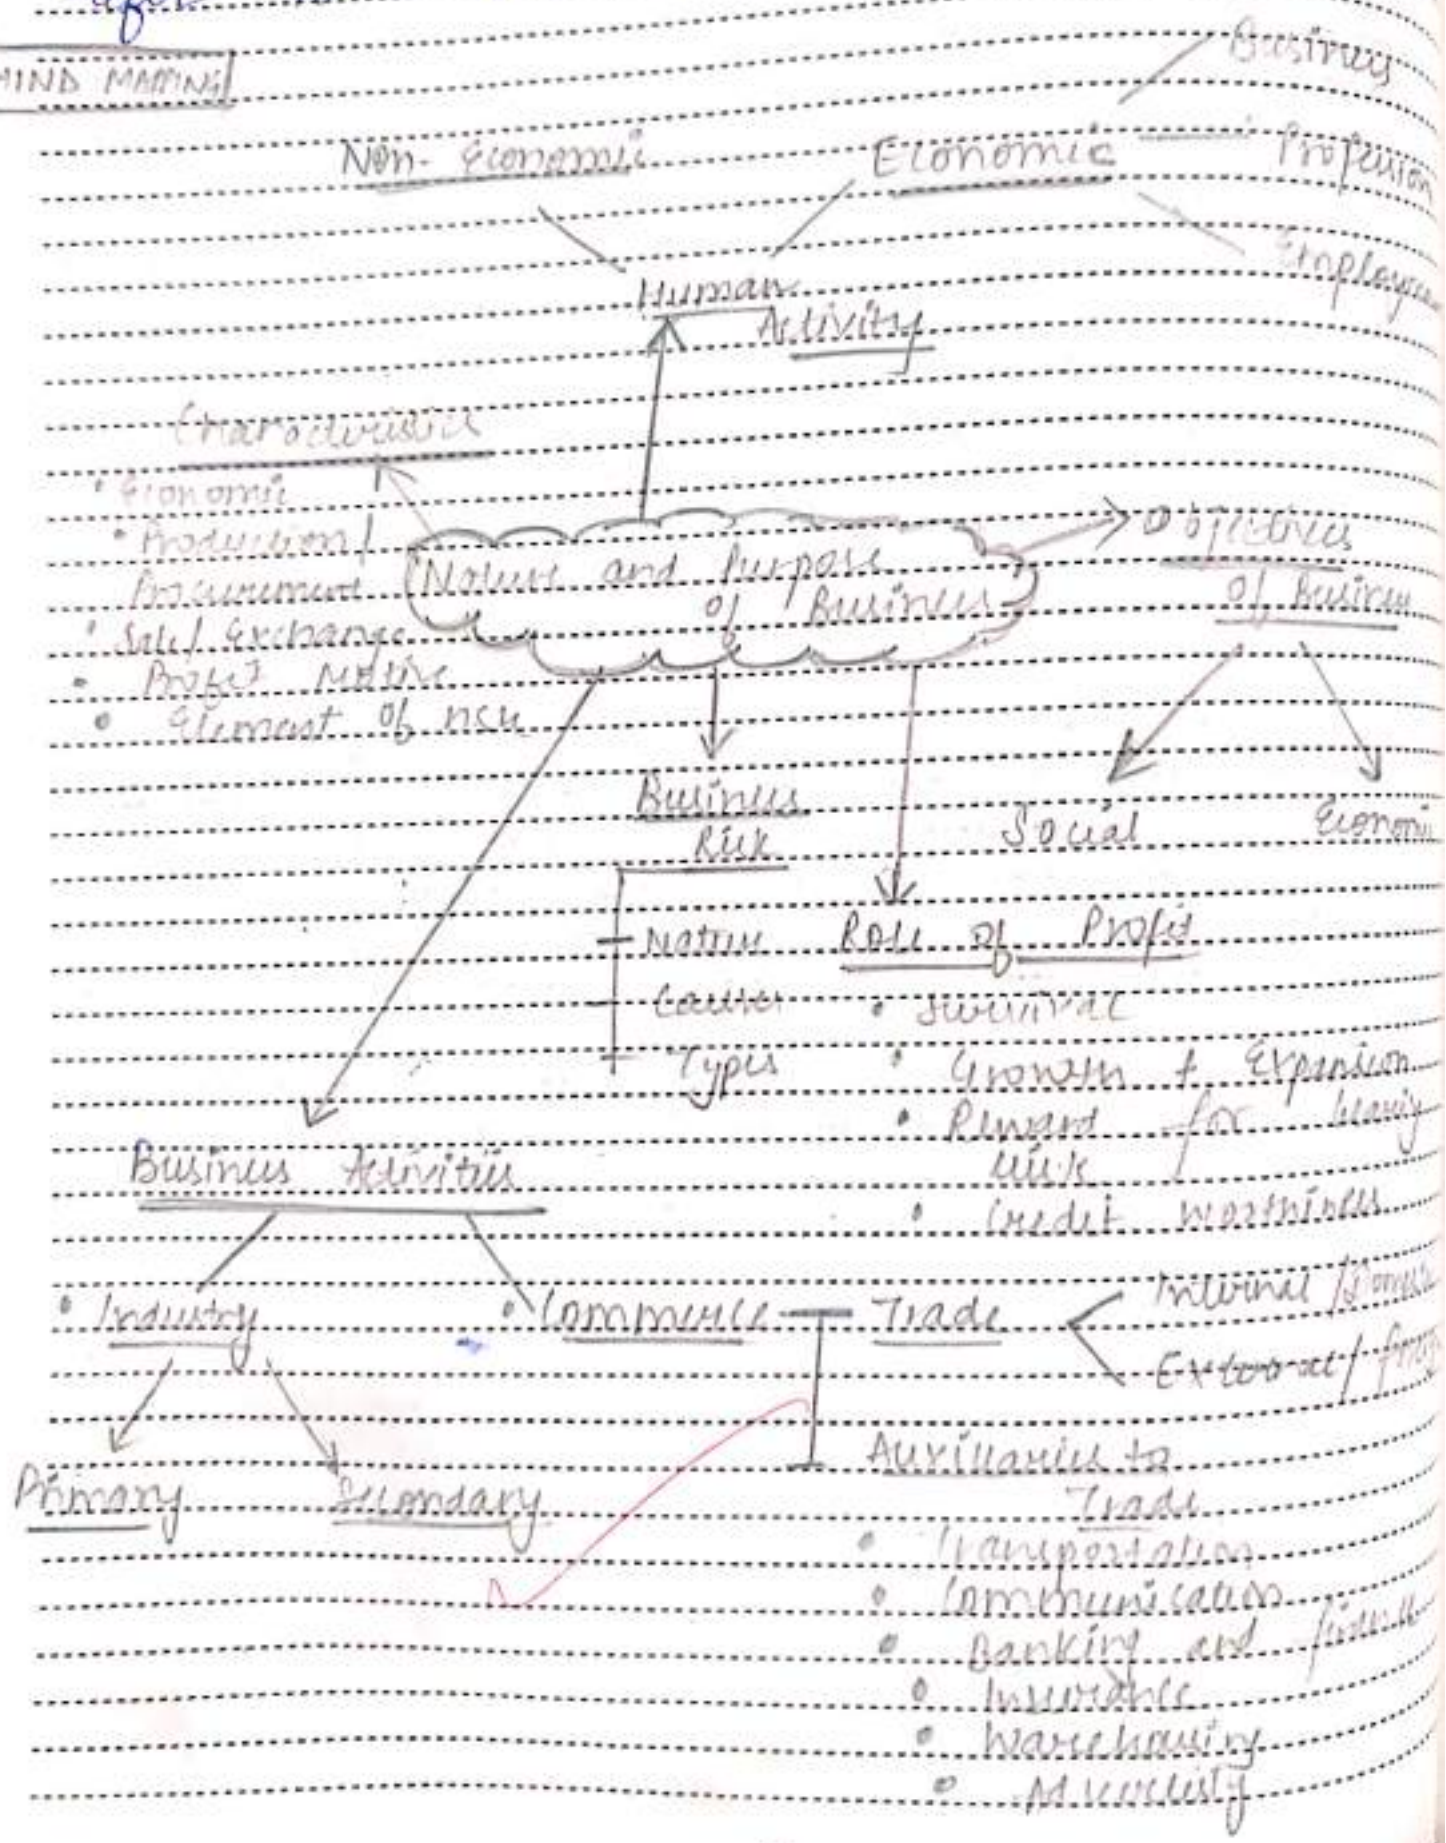 MIND MAPPING
Non-Economic
Economic
Business
Profession
Human
Activity
Characteristics
• Economic
• Production /
Procurement
• Sale / Exchange
• Profit Motive
• Element of risk
Nature and Purpose
of Business
Objectives
of Business
Social
Economic
Business
Risk
Nature
Causes
Types
Role of Profit
• Survival
• Growth + Expansion
• Reward for bearing
risk
• Credit worthiness
Business Activities
• Industry
• Commerce
Trade
Internal /
External /
Primary
Secondary
Auxillaries to
Trade
• Transportation
• Communication
• Banking and finance
• Insurance
• Warehousing